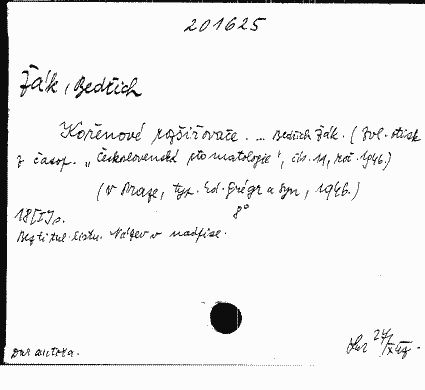 201625
Žák, Bedřich
Kořenové rozšiřovače. ... Bedřich Žák. (Zvl. otisk
z časop. „Československá stomatologie", čís. 11, roč. 1946.)
(V Praze, typ. Ed. Grégr a syn, 1946.)
8°
Bez titul. listu. Název v nadpise.
Dar autora.